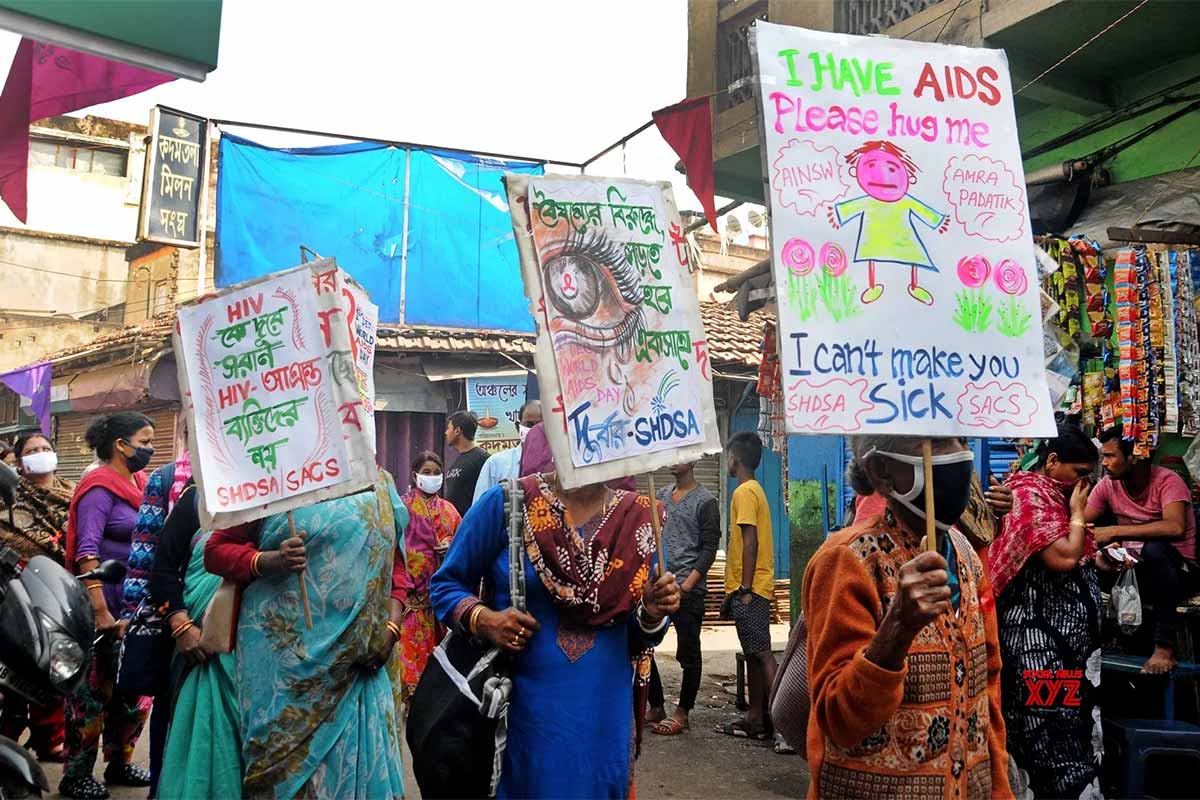 কদমতলা
মিলন
সংঘ
HIV
কে দূরে
সরান
HIV- আক্রান্ত
ব্যক্তিদের
নয়
SHDSA/SACS
WORLD
AIDS
DAY
বৈষম্যের বিরুদ্ধে,
লড়তে
হবে
একসাথে
WORLD
AIDS
DAY
দুর্বার-SHDSA
I HAVE AIDS
Please hug me
AINSW
AMRA
PADATIK
I can't make you
Sick
SHDSA
SACS
SOCIAL NEWS
XYZ